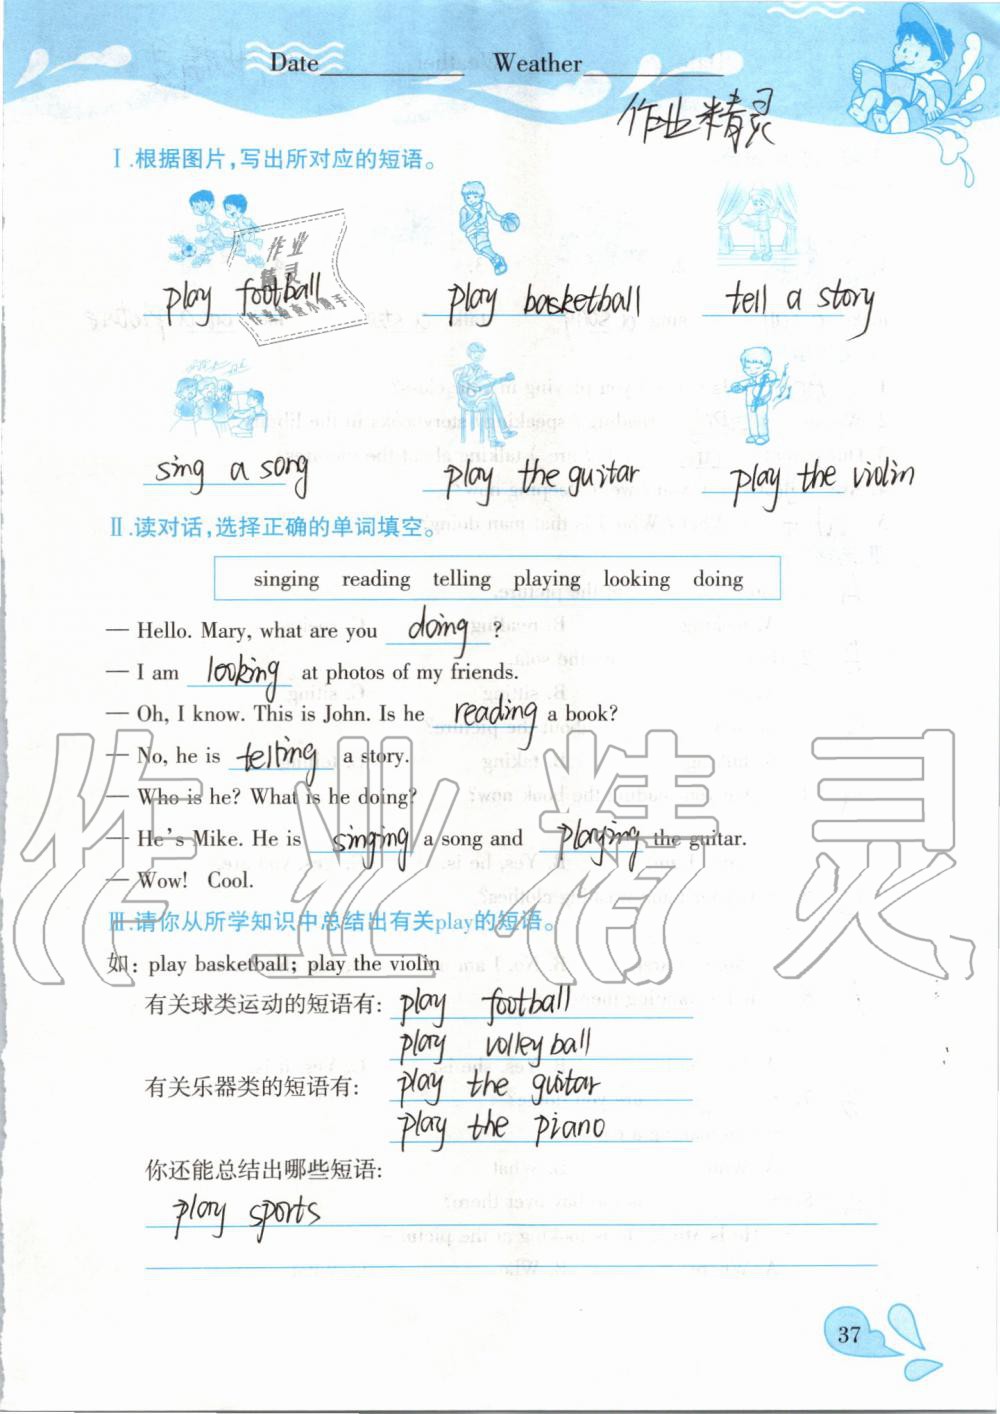 Date Weather
作业精灵
Ⅰ.根据图片,写出所对应的短语。
作业
精灵
play football play basketball tell a story
sing a song play the guitar play the violin
Ⅱ.读对话,选择正确的单词填空。
singing reading telling playing looking doing
— Hello. Mary, what are you doing ?
— I am looking at photos of my friends.
— Oh, I know. This is John. Is he reading a book?
— No, he is telling a story.
— Who is he? What is he doing?
— He's Mike. He is singing a song and playing the guitar.
— Wow! Cool.
作业精灵
Ⅲ.请你从所学知识中总结出有关play的短语。
如: play basketball; play the violin
有关球类运动的短语有: play football
play volleyball
有关乐器类的短语有: play the guitar
play the piano
你还能总结出哪些短语:
play sports
37